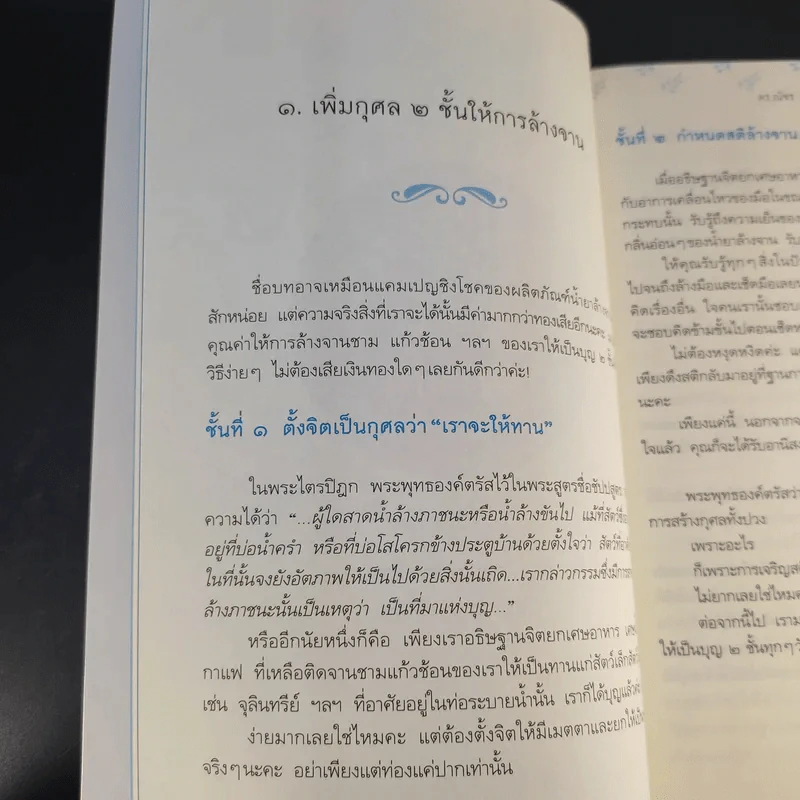 ๑. เพิ่มกุศล ๒ ชั้นให้การล้างจาน
ชื่อบทอาจเหมือนแคมเปญชิงโชคของผลิตภัณฑ์น้ำยาล้าง
สักหน่อย แต่ความจริงสิ่งที่เราจะได้นั้นมีค่ามากกว่าทองเสียอีกนะคะ
คุณค่าให้การล้างจานชาม แก้วช้อน ฯลฯ ของเราให้เป็นบุญ ๒ ชั้น
วิธีง่ายๆ ไม่ต้องเสียเงินทองใดๆเลยกันดีกว่าค่ะ!
ชั้นที่ ๑ ตั้งจิตเป็นกุศลว่า “เราจะให้ทาน”
ในพระไตรปิฎก พระพุทธองค์ตรัสไว้ในพระสูตรชื่อชัปปสูตร
ความได้ว่า “...ผู้ใดสาดน้ำล้างภาชนะหรือน้ำล้างขันไป แม้ที่สัตว์ซึ่ง
อยู่ที่บ่อน้ำครำ หรือที่บ่อโสโครกข้างประตูบ้านด้วยตั้งใจว่า สัตว์ที่อาศัย
ในที่นั้นจงยังอัตภาพให้เป็นไปด้วยสิ่งนั้นเถิด...เรากล่าวกรรมซึ่งมีการ
ล้างภาชนะนั้นเป็นเหตุว่า เป็นที่มาแห่งบุญ...”
หรืออีกนัยหนึ่งก็คือ เพียงเราอธิษฐานจิตยกเศษอาหาร เศษ
กาแฟ ที่เหลือติดจานชามแก้วช้อนของเราให้เป็นทานแก่สัตว์เล็กสัตว์
เช่น จุลินทรีย์ ฯลฯ ที่อาศัยอยู่ในท่อระบายน้ำนั้น เราก็ได้บุญแล้วค่ะ
ง่ายมากเลยใช่ไหมคะ แต่ต้องตั้งจิตให้มีเมตตาและยกให้
จริงๆนะคะ อย่าเพียงแต่ท่องแค่ปากเท่านั้น
ดร.ณัชร
ชั้นที่ ๒ กำหนดสติล้างจาน
เมื่ออธิษฐานจิตยกเศษอาหาร
กับอาการเคลื่อนไหวของมือในขณะ
กระทบนั้น รับรู้ถึงความเย็นของ
กลิ่นอ่อนๆของน้ำยาล้างจาน รับ
ให้คุณรับรู้ทุกๆสิ่งในปั
ไปจนถึงล้างมือและเช็ดมือเลย
คิดเรื่องอื่น ใจคนเรานั้นชอบ
จะชอบคิดข้ามขั้นไปตอนเช็ด
ไม่ต้องหงุดหงิดค่ะ แค่
เพียงดึงสติกลับมาอยู่ที่ฐานกา
นะคะ
เพียงแค่นี้ นอกจากจ
ใจแล้ว คุณก็จะได้รับอานิสง
พระพุทธองค์ตรัสว่า
การสร้างกุศลทั้งปวง
เพราะอะไร
ก็เพราะการเจริญสติ
ไม่ยากเลยใช่ไหมค
ต่อจากนี้ไป เรามา
ให้เป็นบุญ ๒ ชั้นทุกๆวั